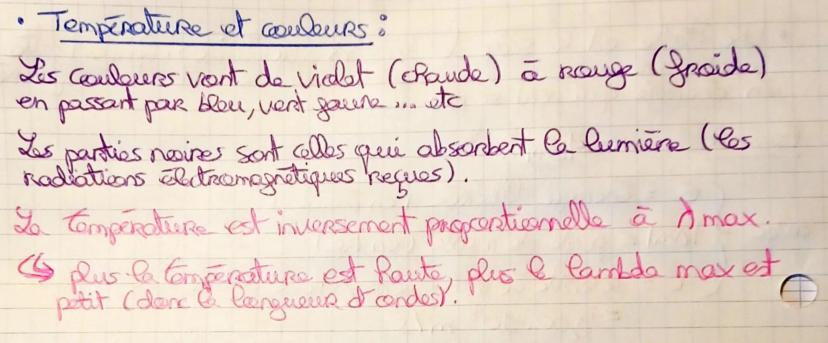 • Température et couleurs :
Les couleurs vont de violet (chaude) à rouge (froide)
en passant par bleu, vert jaune ... etc
Les parties noires sont celles qui absorbent la lumière (les
radiations électromagnétiques reçues).
La température est inversement proportionnelle à λ max.
↳ plus la température est haute, plus le lambda max est
petit (donc la longueur d'ondes).